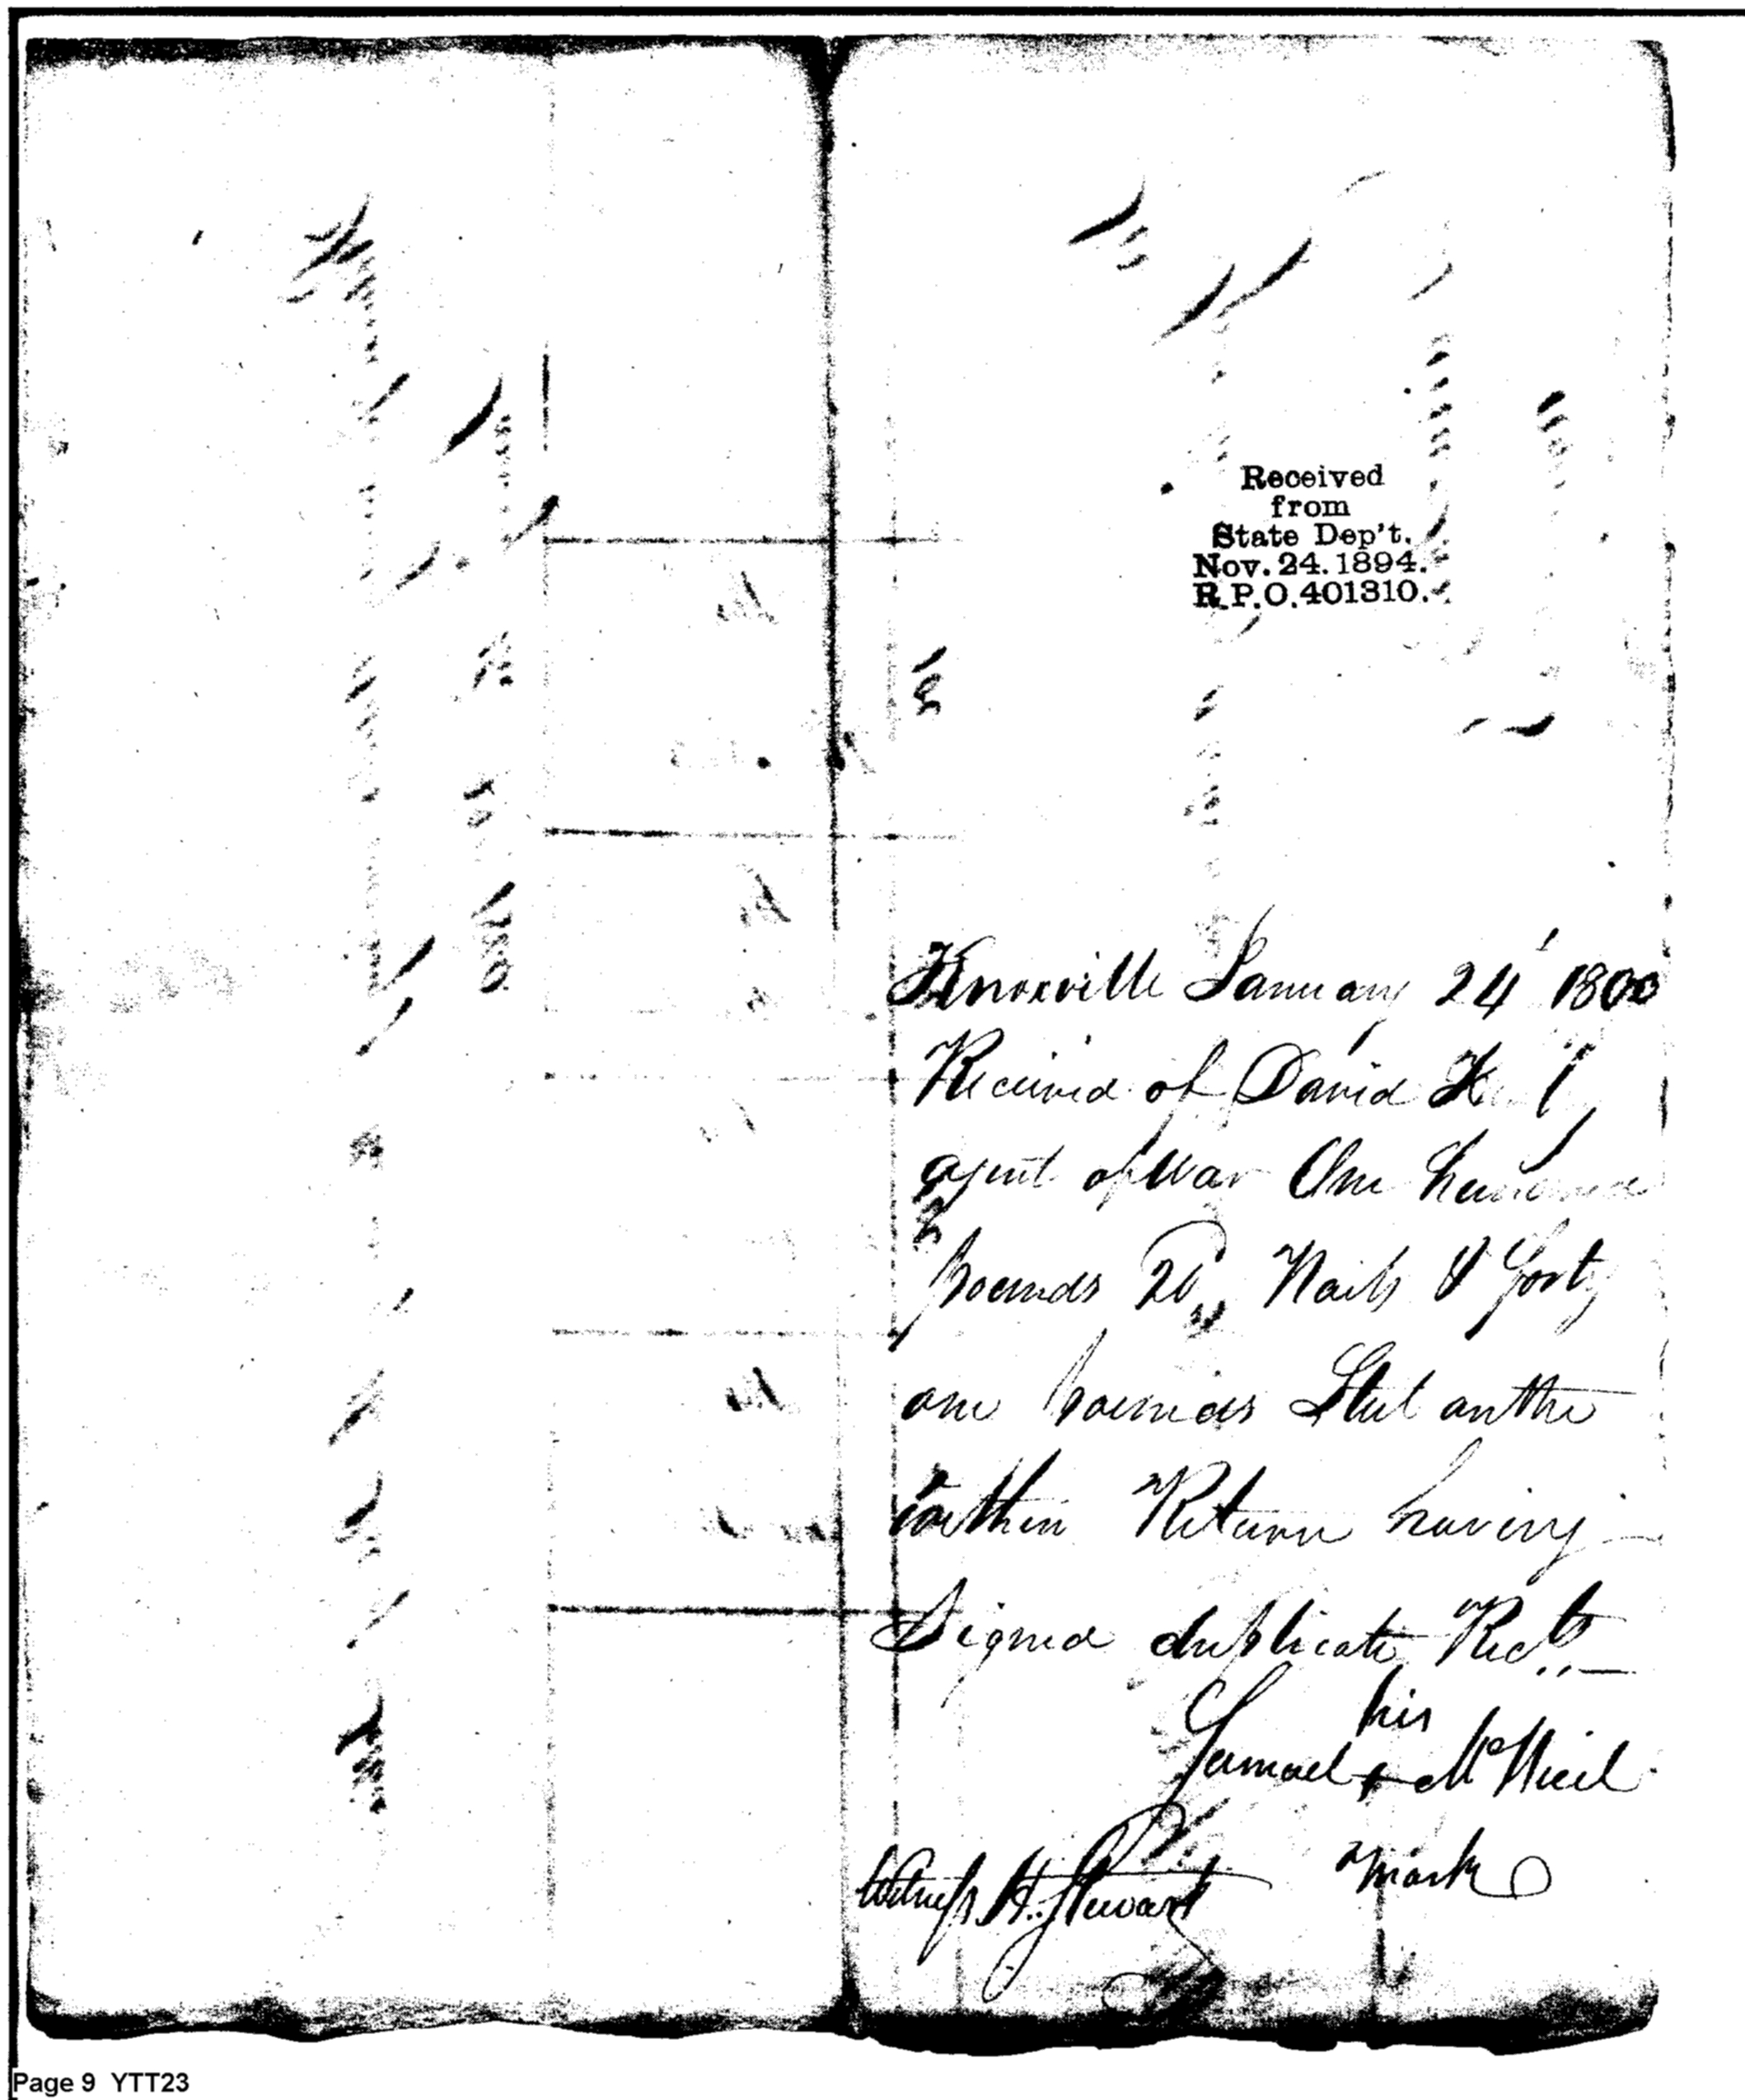 Received
from
State Dep't.
Nov. 24. 1894.
R.P.O. 401310.
Knoxville January 24 1800
Received of David
agent of War One hundred
pounds 20d Nails & forty
one pounds Steel on the
within Return having
Signed duplicate Rects
his
Samuel + McNeil
mark
Witness H. Stewart
Page 9 YTT23